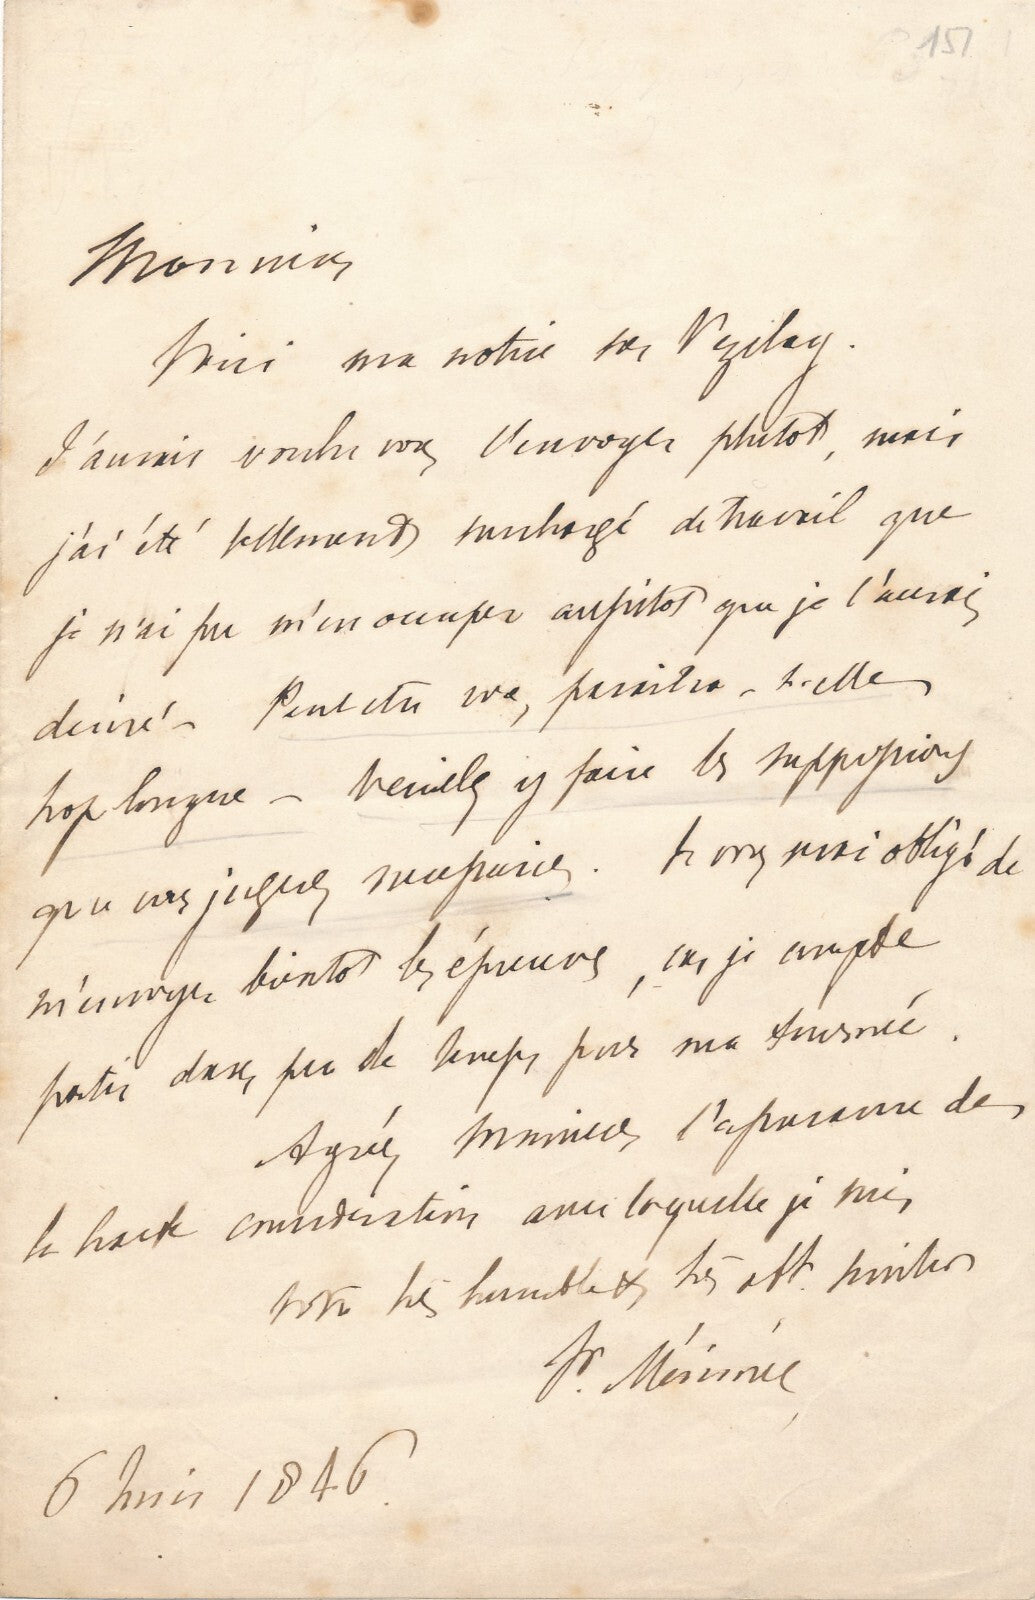 151
Monsieur
Voici ma notice sur Vezelay.
J'aurais voulu vous l'envoyer plutot, mais
j'ai été tellement surchargé de travail que
je n'ai pu m'en occuper aussitot que je l'aurais
desiré - Peut etre vous paraitra-t-elle
trop longue - Veuillez y faire les suppressions
que vous jugerez necessaires. Je vous serai obligé de
m'envoyer bientot les épreuves, car je compte
partir dans peu de temps pour ma tournée.
Agréez Monsieur l'assurance de
la haute consideration avec laquelle je suis
votre très humble & très obt. serviteur
Pr. Mérimée
6 Juin 1846.